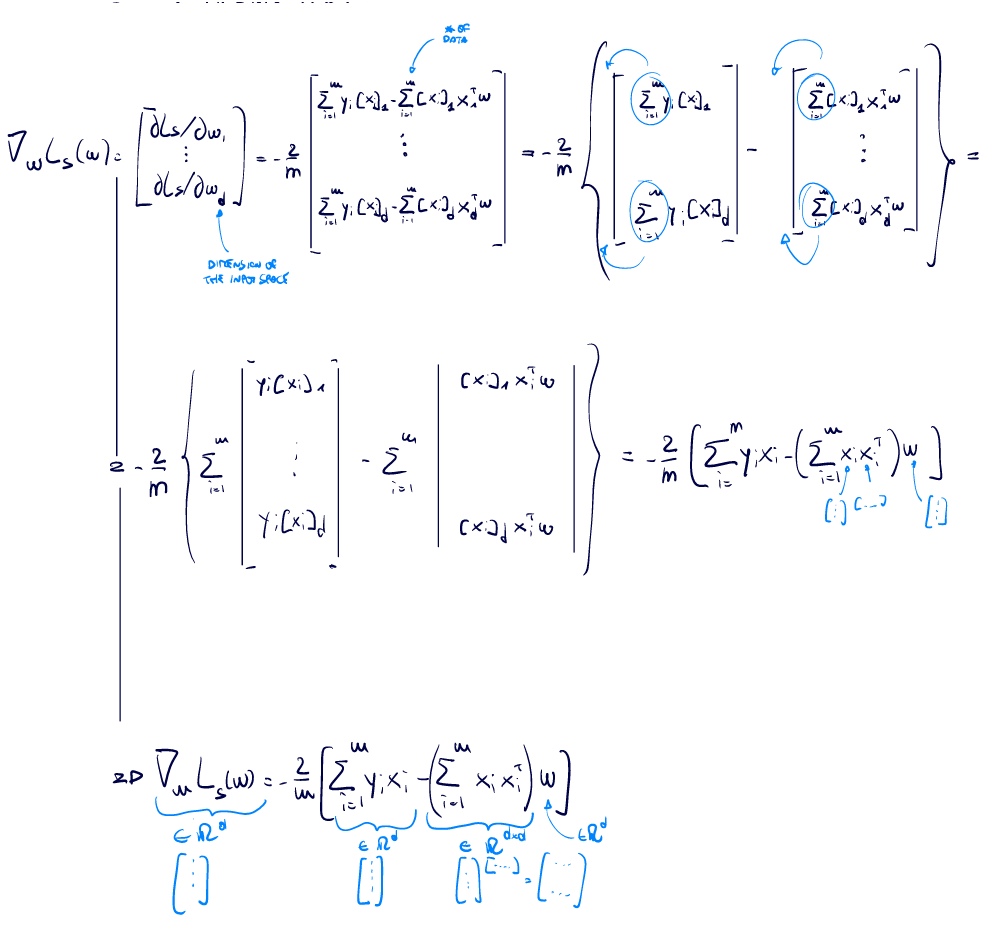 # OF
DATA
∇_w L_s(w) = [∂Ls/∂w_1 ⋮ ∂Ls/∂w_d] = -2/m [∑_{i=1}^m y_i[x_i]_1 - ∑_{i=1}^m [x_i]_1 x_1^T w ⋮ ∑_{i=1}^m y_i[x_i]_d - ∑_{i=1}^m [x_i]_d x_d^T w] = -2/m { [∑_{i=1}^m y_i[x_i]_1 ∑_{i=1}^m y_i[x]_d] - [∑_{i=1}^m [x_i]_1 x_1^T w ⋮ ∑_{i=1}^m [x_i]_d x_d^T w] } =
DIMENSION OF
THE INPUT SPACE
= -2/m { ∑_{i=1}^m [y_i[x_i]_1 ⋮ y_i[x_i]_d] - ∑_{i=1}^m [[x_i]_1 x_i^T w [x_i]_d x_i^T w] } = -2/m [∑_{i=}^m y_i x_i - (∑_{i=1}^m x_i x_i^T) w]
[⋮] [...] [⋮]
=> ∇_w L_s(w) = -2/m [∑_{i=1}^m y_i x_i - (∑_{i=1}^m x_i x_i^T) w]
∈ ℝ^d ∈ ℝ^d ∈ ℝ^{d×d} ∈ ℝ^d
[⋮] [⋮] [⋮] [...] = [... ...]